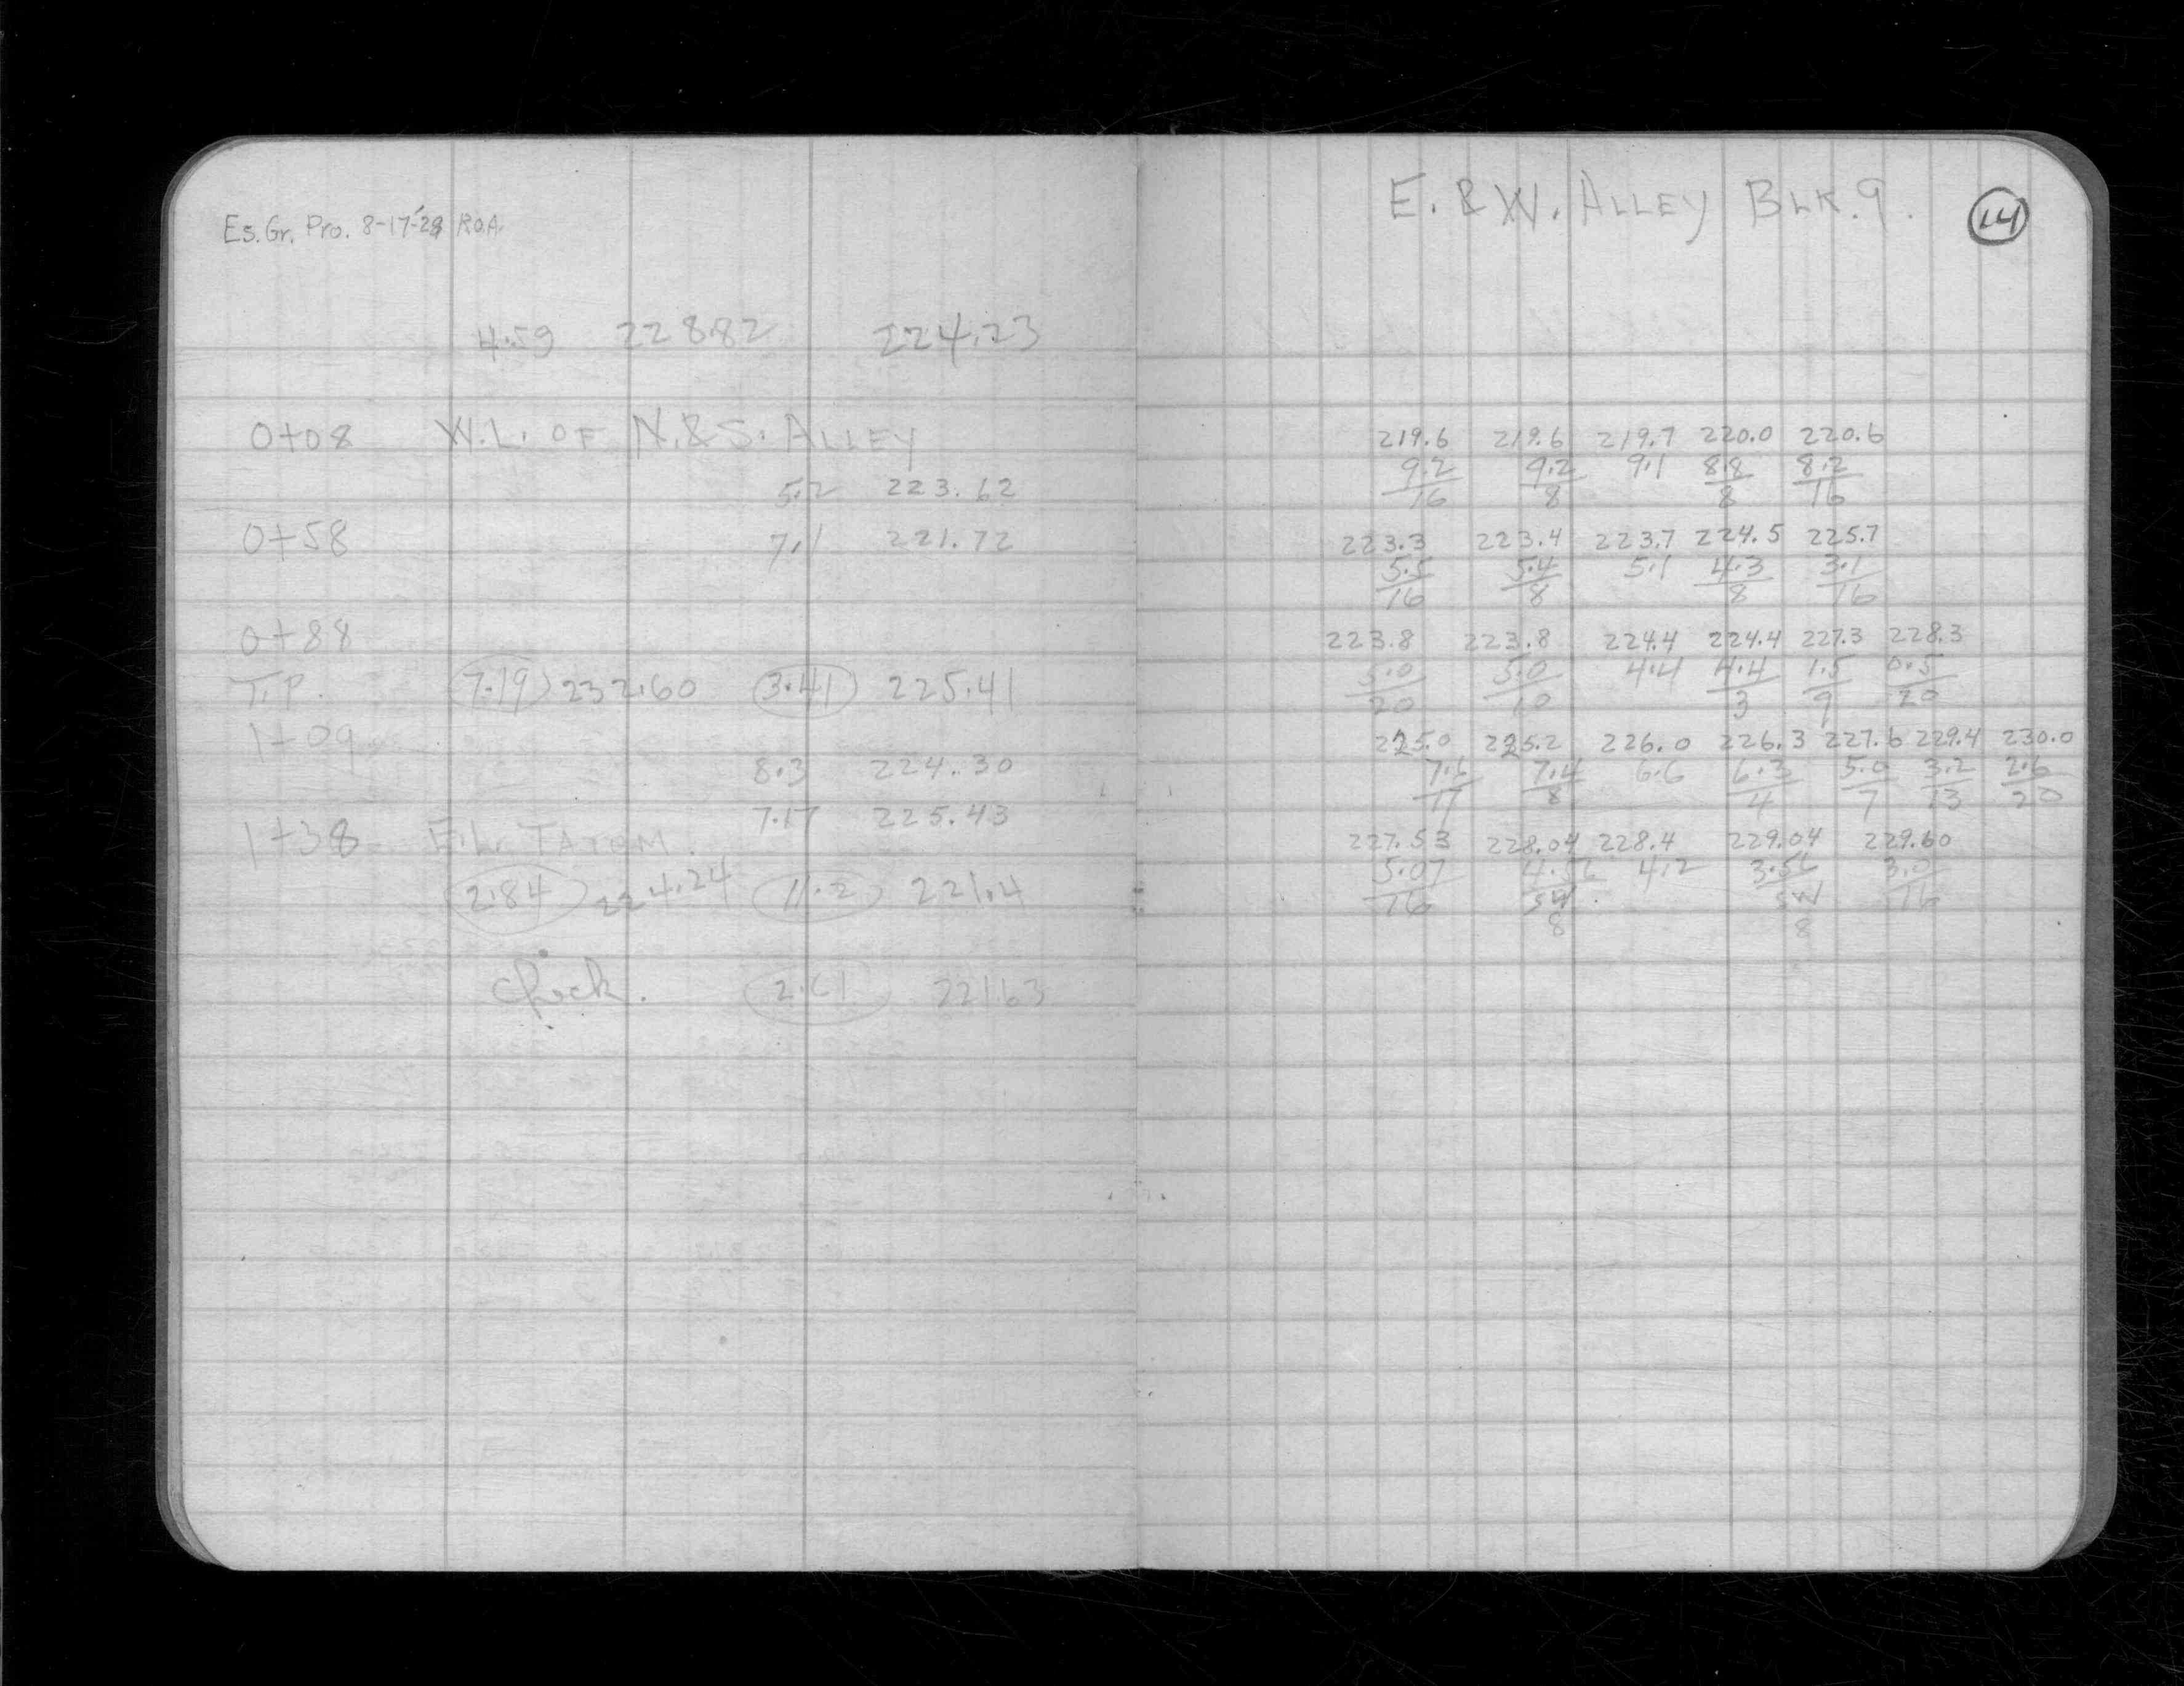 Es. Gr. Pro. 8-17-'28 R.O.A.
4.59 228.82 224.23
0+08 W.L. OF N.&S. ALLEY
5.2 223.62
0+58 7.1 221.72
0+88
T.P. 7.19 232.60 3.41 225.41
1+09
8.3 224.30
7.17 225.43
1+38 E.L. TATEM.
2.84 224.24 11.2 221.4
Check. 2.61 221.63
E. & W. ALLEY BLK. 9. 14
219.6 219.6 219.7 220.0 220.6
9.2 9.2 9.1 8.8 8.2
16 8 8 16
223.3 223.4 223.7 224.5 225.7
5.5 5.4 5.1 4.3 3.1
16 8 8 16
223.8 223.8 224.4 224.4 227.3 228.3
5.0 5.0 4.4 4.4 1.5 0.5
20 10 3 9 20
225.0 225.2 226.0 226.3 227.6 229.4 230.0
7.6 7.4 6.6 6.3 5.0 3.2 2.6
17 8 4 7 13 20
227.53 228.04 228.4 229.04 229.60
5.07 4.56 4.2 3.56 3.0
16 SW SW 16
8 8